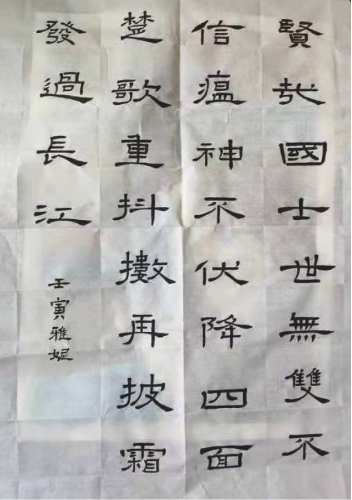 賢哉國士世無雙不
信瘟神不伏降四面
楚歌重抖擻再披霜
發過長江
壬寅雅妮